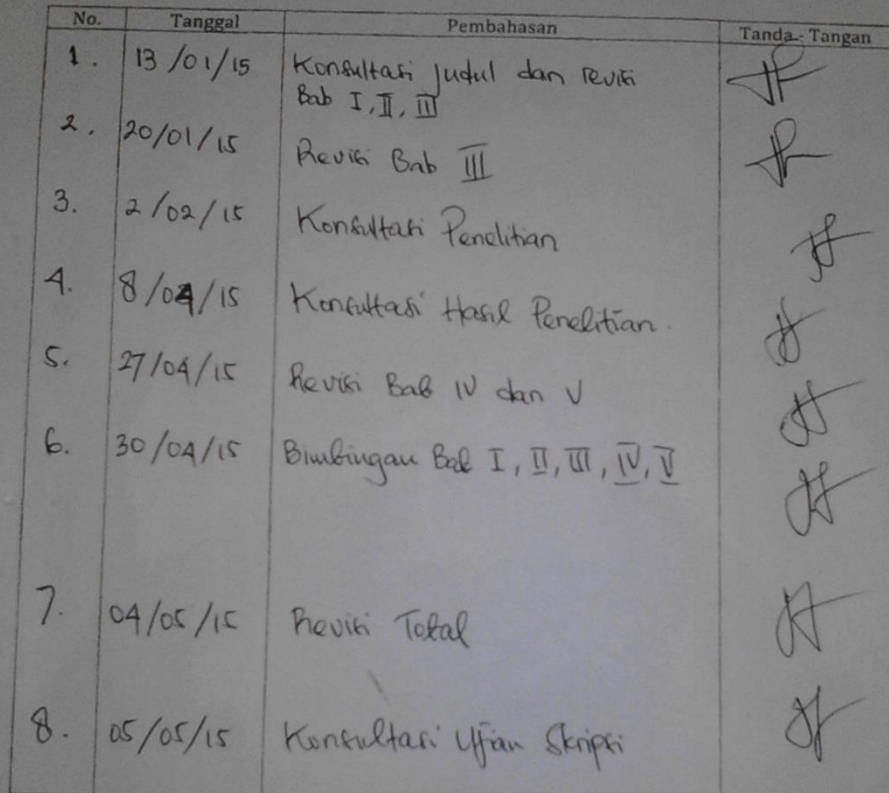 No. Tanggal Pembahasan Tanda - Tangan
1. 13/01/15 Konsultasi Judul dan revisi
Bab I, II, III
2. 20/01/15 Revisi Bab III
3. 2/02/15 Konsultasi Penelitian
4. 8/04/15 Konsultasi Hasil Penelitian.
5. 27/04/15 Revisi Bab IV dan V
6. 30/04/15 Bimbingan Bab I, II, III, IV, V
7. 04/05/15 Revisi Total
8. 05/05/15 Konsultasi Ujian Skripsi